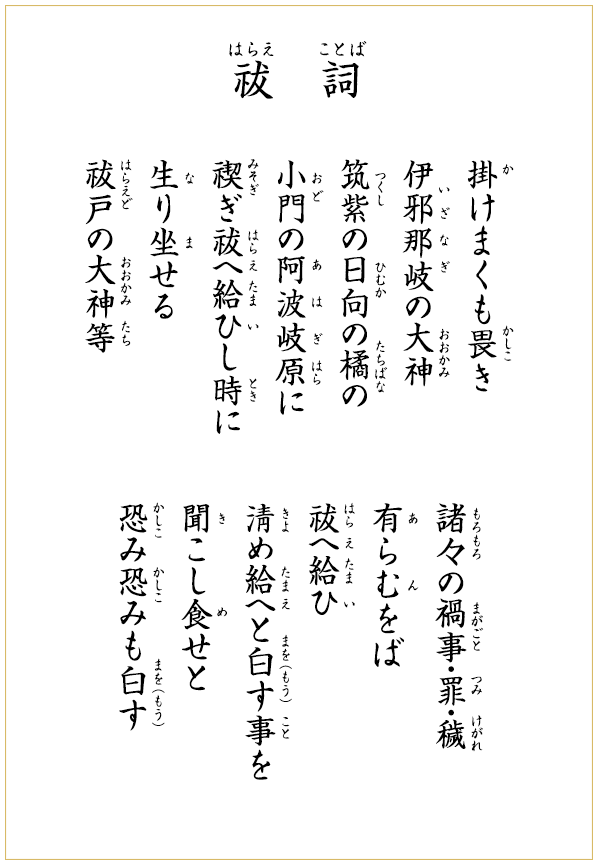 祓　詞
掛けまくも畏き
伊邪那岐の大神
筑紫の日向の橘の
小門の阿波岐原に
禊ぎ祓へ給ひし時に
生り坐せる
祓戸の大神等
諸々の禍事・罪・穢
有らむをば
祓へ給ひ
清め給へと白す事を
聞こし食せと
恐み恐みも白す
はらえ　ことば
か　かしこ
いざなぎ　おおかみ
つくし　ひむか　たちばな
おど　あはぎはら
みそぎ　はらえたまい　とき
な　ま
はらえど　おおかみたち
もろもろ　まがごと　つみ　けがれ
あ　ん
はらえたまい
きよ　たまえ　まを（もう）　こと
き　め
かしこ　かしこ　まを（もう）